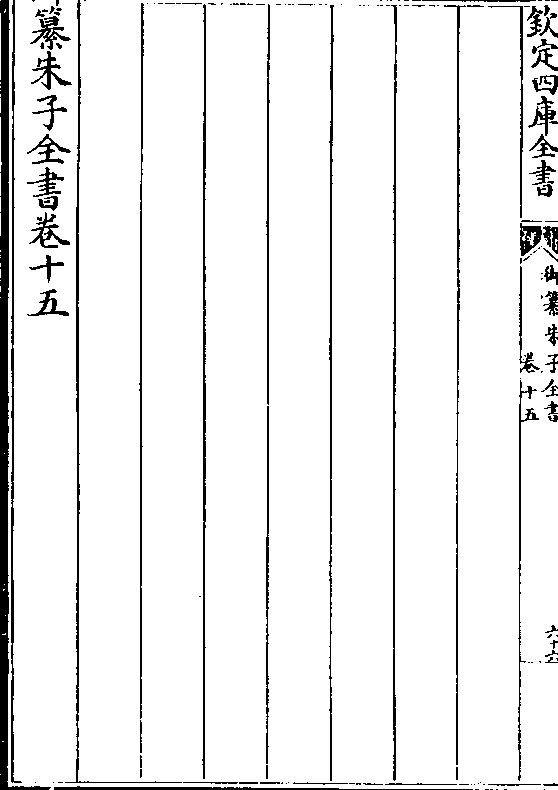 欽定四庫全書
御纂朱子全書
卷十五
六十六
纂朱子全書卷十五